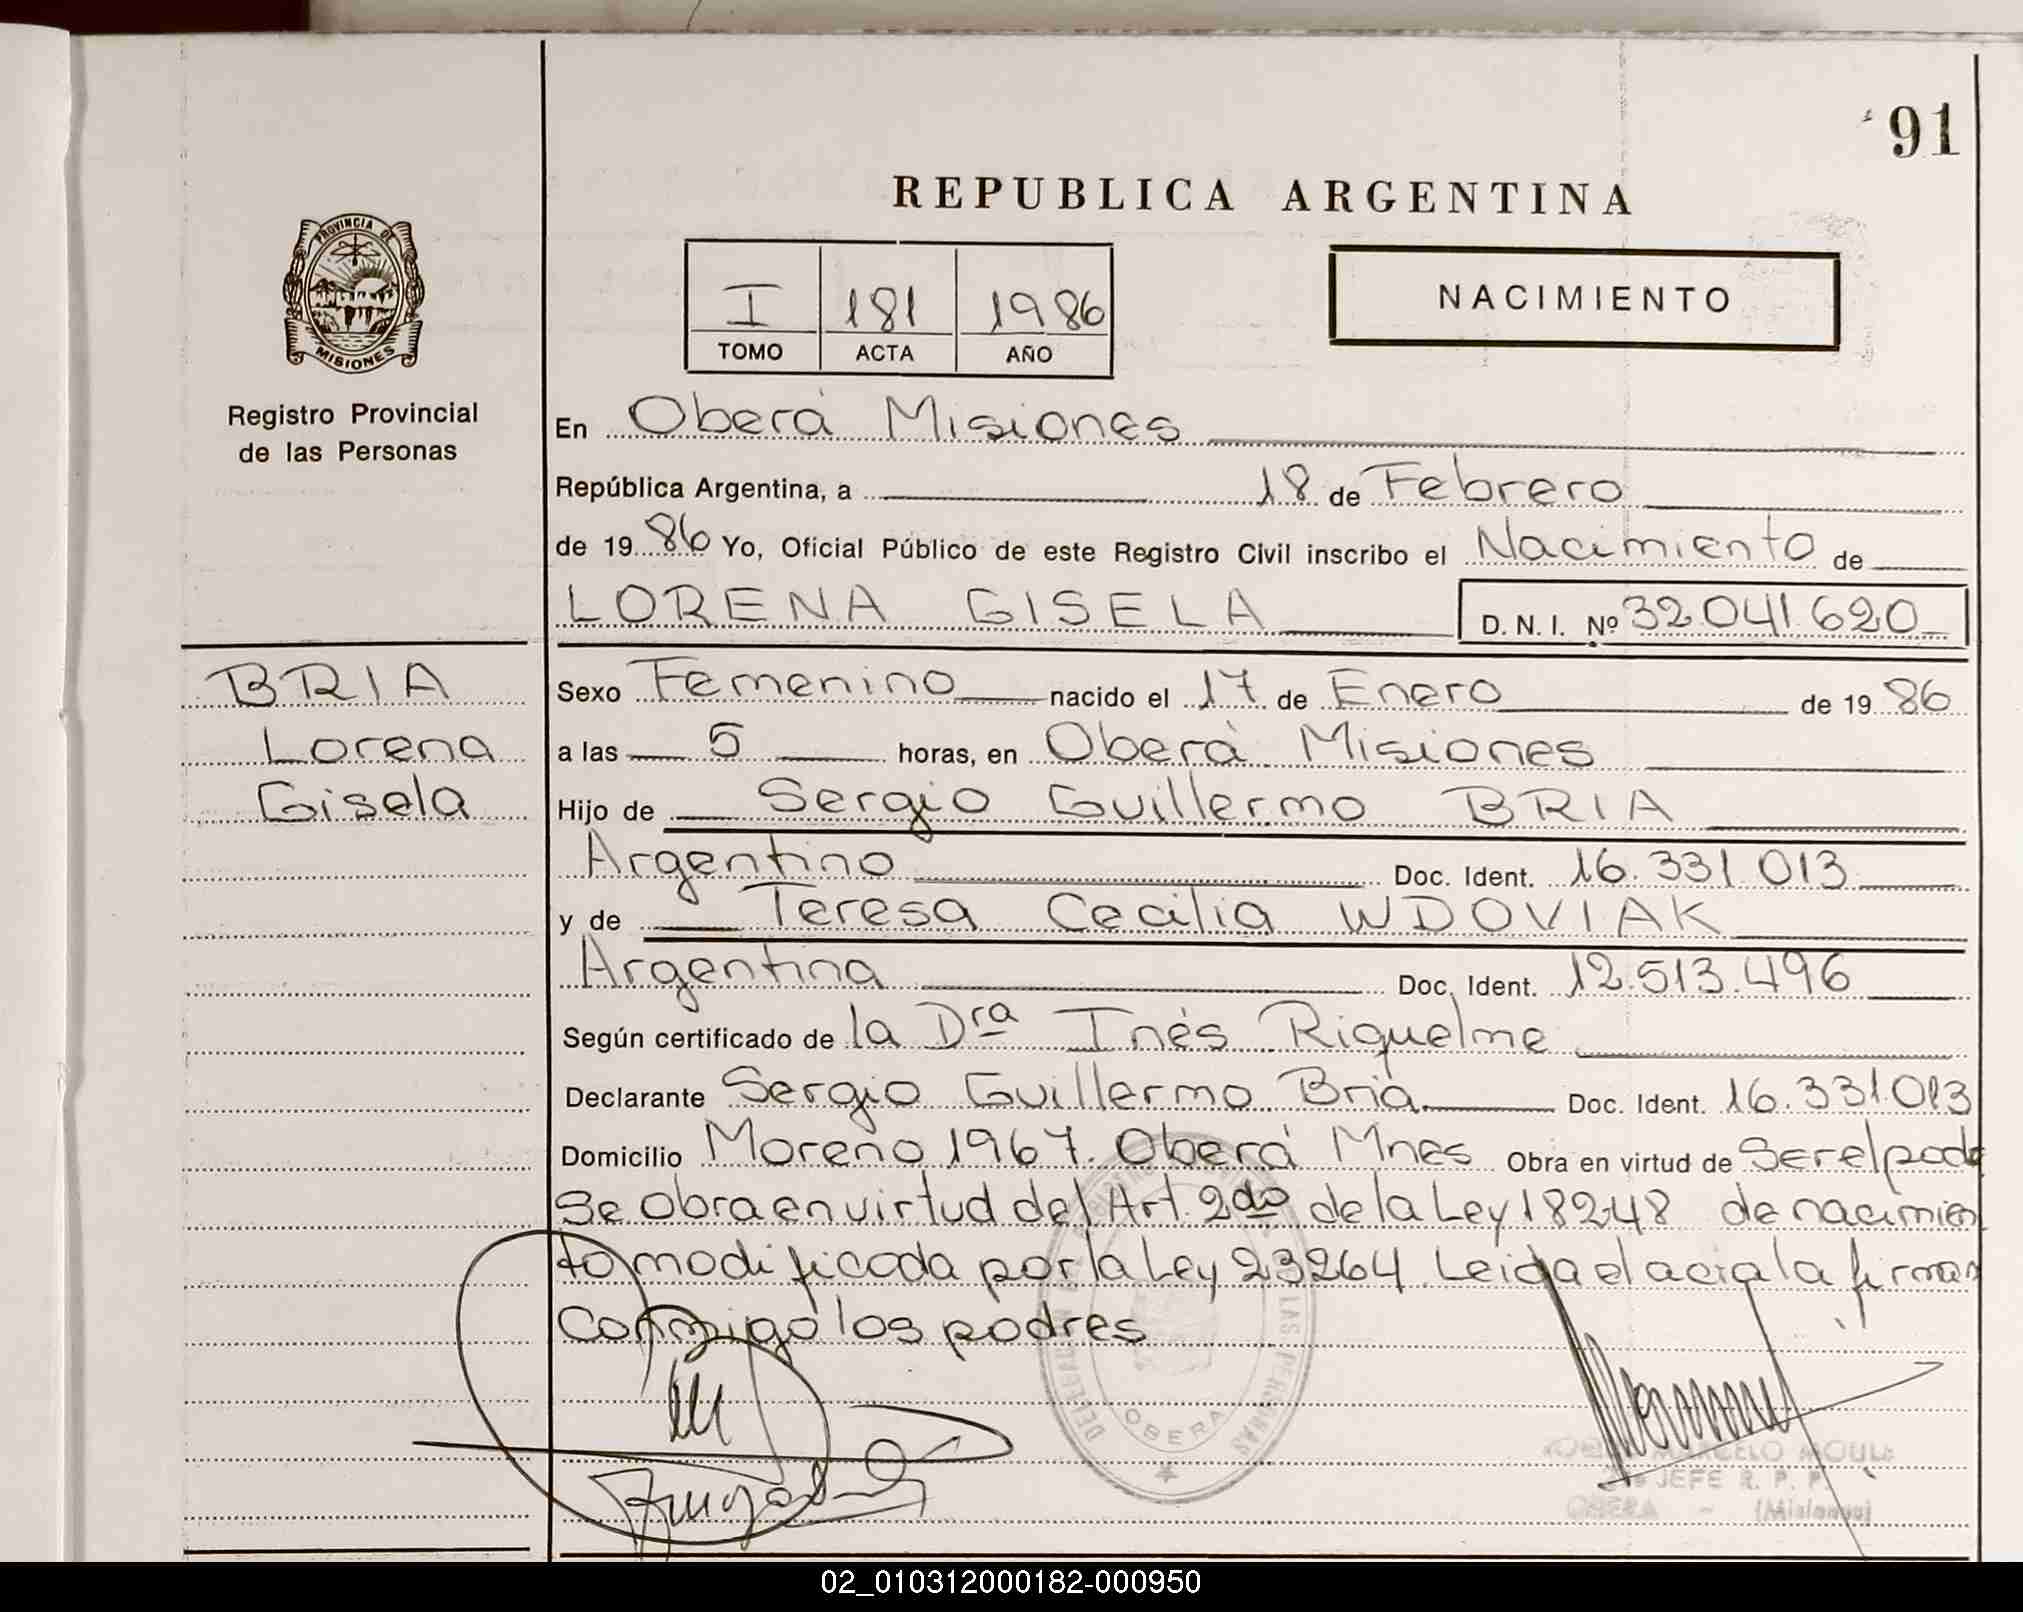 91
REPUBLICA ARGENTINA
PROVINCIA DE
MISIONES
Registro Provincial
de las Personas
I 181 1986
TOMO ACTA AÑO
NACIMIENTO
En Oberá Misiones
República Argentina, a 18 de Febrero
de 1986 Yo, Oficial Público de este Registro Civil inscribo el Nacimiento de
LORENA GISELA D. N. I. Nº 32041620
BRIA
Lorena
Gisela
Sexo Femenino nacido el 17 de Enero de 1986
a las 5 horas, en Oberá Misiones
Hijo de Sergio Guillermo BRIA
Argentino Doc. Ident. 16.331 013
y de Teresa Cecilia WDOVIAK
Argentina Doc. Ident. 12.513.496
Según certificado de la Dra Inés Riquelme
Declarante Sergio Guillermo Bria Doc. Ident. 16.331.013
Domicilio Moreno 1967. Oberá Mnes Obra en virtud de Ser el padre
Se obra en virtud del Art. 2do de la Ley 18248 de nacimien
to modificada por la Ley 23264 Leida el acta la firman
Conmigo los padres
OBERA
MARCELO
JEFE R. P. P.
OBERA - (Misiones)
02_010312000182-000950